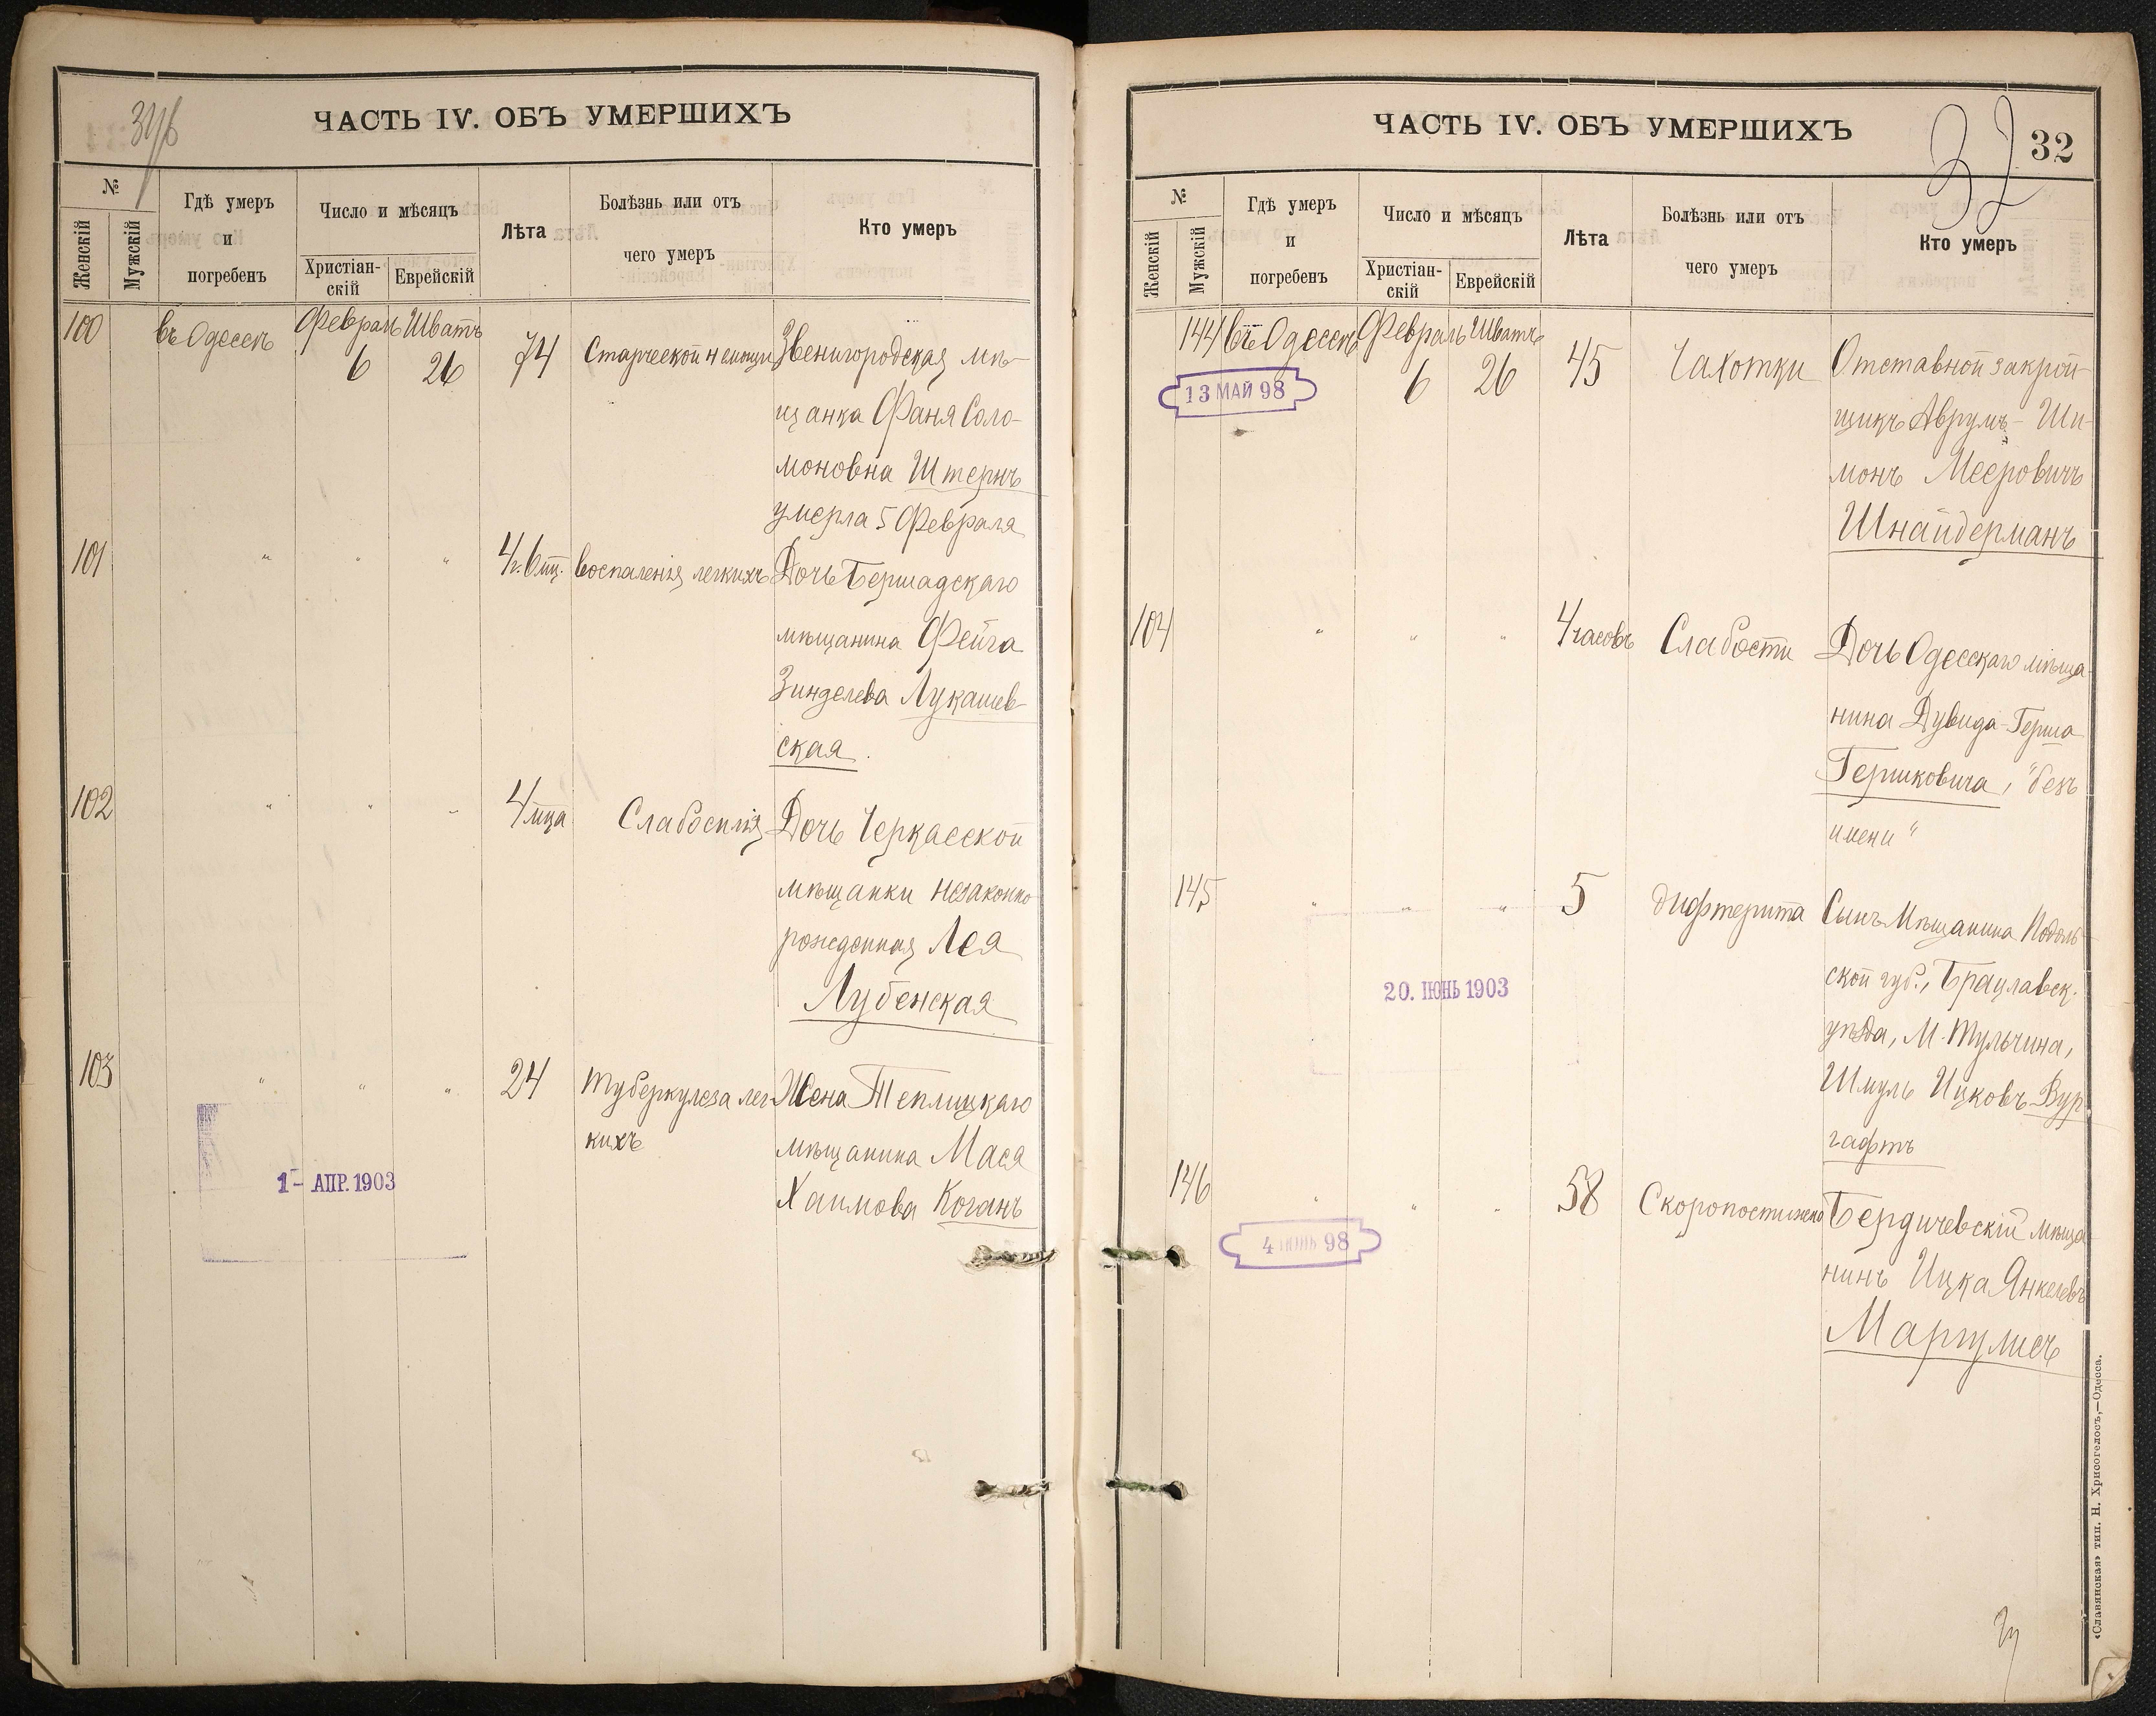 ЧАСТЬ IV. ОБЪ УМЕРШИХЪ
№
Женскій
Мужскій
Гдѣ умеръ
и
погребенъ
Число и мѣсяцъ
Христіан-
скій
Еврейскій
Лѣта
Болѣзнь или отъ
чего умеръ
Кто умеръ
100 въ Одессѣ Февраль Шватъ
6 26 74 Старческой немощи Звенигородская мѣ-
щанка Фаня Соло-
моновна Штернъ
умерла 5 Февраля
101 " " " 4 г. 6 мц. воспаленія легкихъ Дочь Бершадскаго
мѣщанина Фейга
Зинделева Лукашев-
ская.
102 " " " 4 мца Слабосилія Дочь Черкасской
мѣщанки незаконно
рожденная Лея
Лубенская
103 " " " 24 Туберкулеза лег- Жена Теплицкаго
кихъ мѣщанина Мася
1- АПР. 1903
Хаимова Коганъ
ЧАСТЬ IV. ОБЪ УМЕРШИХЪ
32
32
№
Женскій
Мужскій
Гдѣ умеръ
и
погребенъ
Число и мѣсяцъ
Христіан-
скій
Еврейскій
Лѣта
Болѣзнь или отъ
чего умеръ
Кто умеръ
144 въ Одессѣ Февраль Шватъ
6 26 45 Чахотки Отставной закрой-
13 МАЙ 98
щикъ Аврумъ-Ши-
монъ Мееровичъ
Шнайдерманъ
104 " " " 4 часовъ Слабости Дочь Одесскаго мѣща-
нина Дувида-Герша
Гершковича, "безъ
имени"
145 " " " 5 дифтерита Сынъ Мѣщанина Подоль-
ской губ., Брацлавск.
20. ІЮНЬ 1903
уѣзда, М. Тульчина,
Шмуль Ицковъ Вур-
гафтъ
146 " " " 58 Скоропостижно Бердичевскій мѣща-
4 ІЮНЬ 98
нинъ Ицка Янкелевъ
Маргулисъ
«Славянская» тип. Н. Хрисогелосъ,—Одесса.